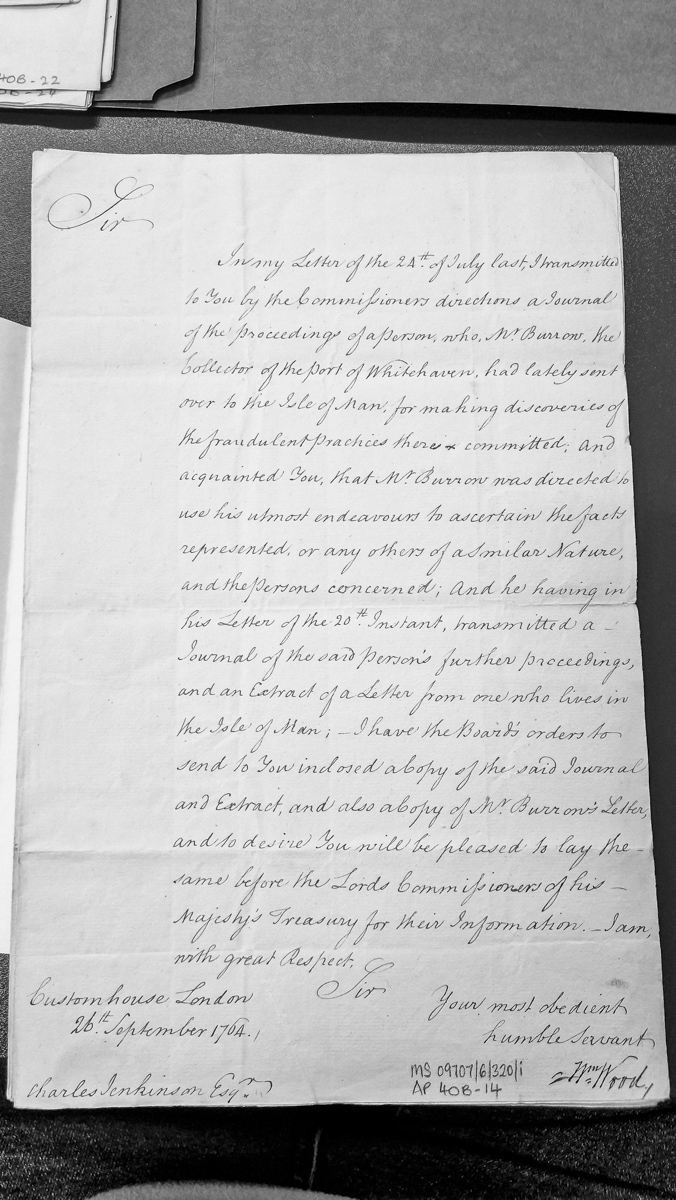 40B-22
Sir
In my Letter of the 24th. of July last, I transmitted
to You by the Commissioners directions a Journal
of the proceedings of a person, who, Mr. Burrow, the
Collector of the port of Whitehaven, had lately sent
over to the Isle of Man, for making discoveries of
the fraudulent practices there committed; and
acquainted You, that Mr. Burrow was directed to
use his utmost endeavours to ascertain the facts
represented, or any others of a Smilar Nature,
and the persons concerned; And he having in
his Letter of the 20th. Instant, transmitted a –
Journal of the said person's further proceedings,
and an Extract of a Letter from one who lives in
the Isle of Man; – I have the Board's orders to
send to You inclosed a Copy of the said Journal
and Extract, and also a Copy of Mr. Burrow's Letter,
and to desire You will be pleased to lay the –
same before the Lords Commissioners of his –
Majesty's Treasury for their Information. – I am,
with great Respect,
Sir
Customhouse London
26th. September 1764.
Your most obedient
humble Servant
Wm. Wood,
Charles Jenkinson Esqr.
MS 09707/6/320/i
AP 40B-14